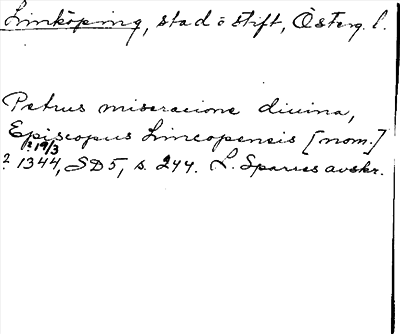 Linköping, stad o stift, Österg. l.
Petrus miseracione diuina,
Episcopus Lincopensis [nom.]
(? 19/3
? 1344, SD5, s. 244. L. Sparres avskr.